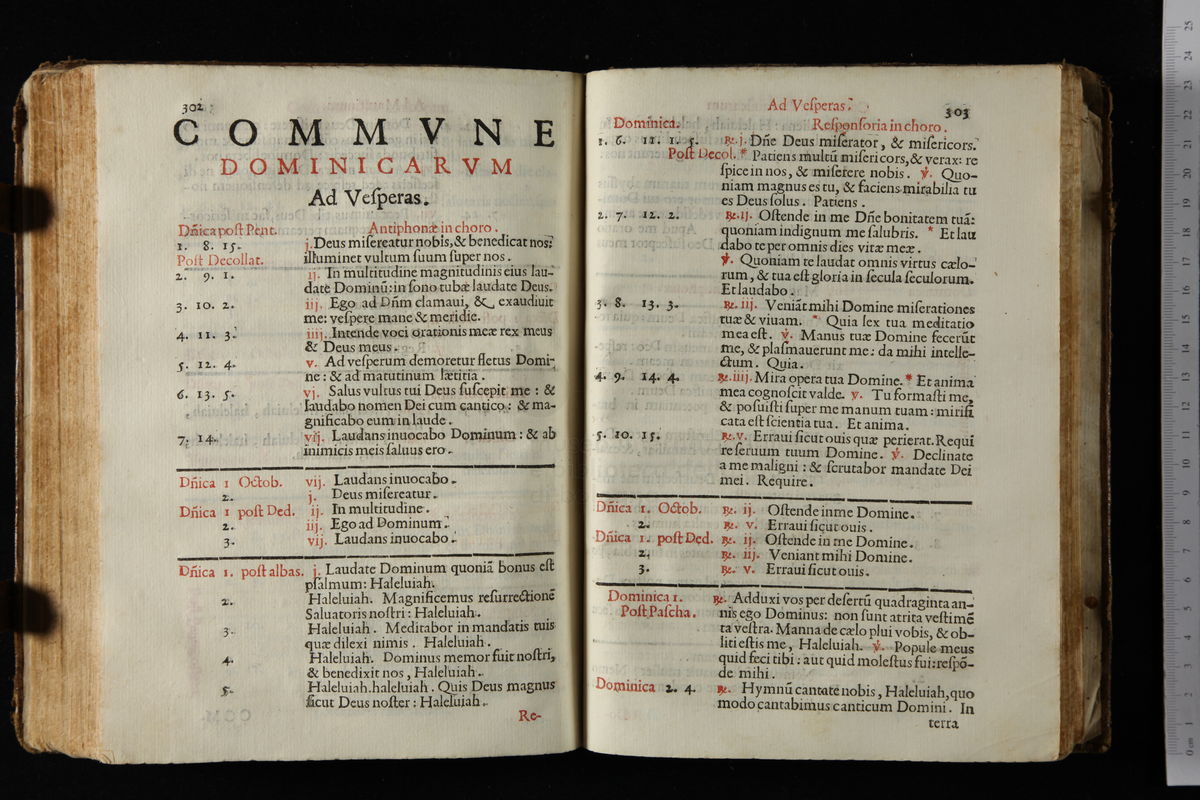 302
COMMVNE
DOMINICARVM
Ad Veſperas.
Dñica poſt Pent. Antiphonæ in choro.
1. 8. 15. j. Deus miſereatur nobis, & benedicat nos:
Poſt Decollat. illuminet vultum ſuum ſuper nos.
2. 9. 1. ij. In multitudine magnitudinis eius lau-
date Dominū: in ſono tubæ laudate Deus.
3. 10. 2. iij. Ego ad Dñm clamaui, & exaudiuit
me: veſpere mane & meridie.
4. 11. 3. iiij. Intende voci orationis meæ rex meus
& Deus meus.
5. 12. 4. v. Ad veſperum demoretur fletus Domi-
ne: & ad matutinum lætitia.
6. 13. 5. vj. Salus vultus tui Deus ſuſcepit me: &
laudabo nomen Dei cum cantico: & ma-
gnificabo eum in laude.
7. 14. vij. Laudans inuocabo Dominum: & ab
inimicis meis ſaluus ero.
Dñica 1 Octob. vij. Laudans inuocabo.
2. j. Deus miſereatur.
Dñica 1 poſt Ded. ij. In multitudine.
2. iij. Ego ad Dominum.
3. vij. Laudans inuocabo.
Dñica 1. poſt albas. j. Laudate Dominum quoniā bonus eſt
pſalmum: Haleluiah.
2. Haleluiah. Magnificemus reſurrectionē
Saluatoris noſtri: Haleluiah.
3. Haleluiah. Meditabor in mandatis tuis
quæ dilexi nimis. Haleluiah.
4. Haleluiah. Dominus memor fuit noſtri,
& benedixit nos, Haleluiah.
5. Haleluiah. haleluiah. Quis Deus magnus
ſicut Deus noſter: Haleluiah.
Re-
Ad Veſperas. 303
Dominica. Reſponſoria in choro.
1. 6. 11. 1. 5. ℞. j. Dñe Deus miſerator, & miſericors.
Poſt Decol. * Patiens multū miſericors, & verax: re
ſpice in nos, & miſerere nobis. ℣. Quo-
niam magnus es tu, & faciens mirabilia tu
es Deus ſolus. Patiens.
2. 7. 12. 2. ℞. ij. Oſtende in me Dñe bonitatem tuā:
quoniam indignum me ſalubris. * Et lau
dabo te per omnis dies vitæ meæ.
℣. Quoniam te laudat omnis virtus cælo-
rum, & tua eſt gloria in ſecula ſeculorum.
Et laudabo.
3. 8. 13. 3. ℞. iij. Veniāt mihi Domine miſerationes
tuæ & viuam. * Quia lex tua meditatio
mea eſt. ℣. Manus tuæ Domine fecerūt
me, & plaſmauerunt me: da mihi intelle-
ctum. Quia.
4. 9. 14. 4. ℞. iiij. Mira opera tua Domine. * Et anima
mea cognoſcit valde. ℣. Tu formaſti me,
& poſuiſti ſuper me manum tuam: mirifi
cata eſt ſcientia tua. Et anima.
5. 10. 15. ℞. v. Erraui ſicut ouis quæ perierat. Requi
re ſeruum tuum Domine. ℣. Declinate
a me maligni: & ſcrutabor mandate Dei
mei. Require.
Dñica 1. Octob. ℞. ij. Oſtende in me Domine.
2. ℞. v. Erraui ſicut ouis.
Dñica 1. poſt Ded. ℞. ij. Oſtende in me Domine.
2. ℞. iij. Veniant mihi Domine.
3. ℞. v. Erraui ſicut ouis.
Dominica 1. ℞. Adduxi vos per deſertū quadraginta an-
Poſt Paſcha. nis ego Dominus: non ſunt atrita veſtimē
ta veſtra. Manna de cælo plui vobis, & ob-
liti eſtis me, Haleluiah. ℣. Popule meus
quid feci tibi: aut quid moleſtus fui: reſpō-
de mihi.
Dominica 2. 4. ℞. Hymnū cantate nobis, Haleluiah, quo
modo cantabimus canticum Domini. In
terra